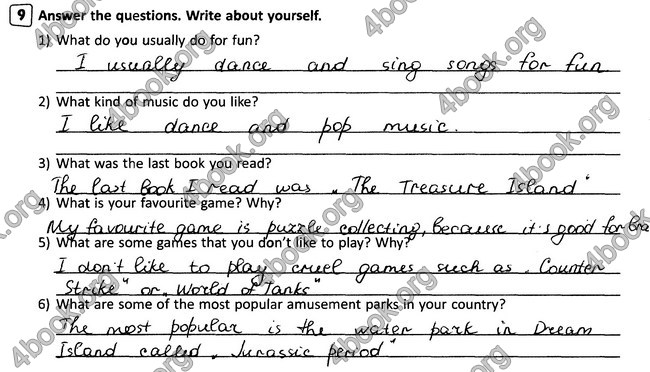 9 Answer the questions. Write about yourself.
1) What do you usually do for fun?
I usually dance and sing songs for fun
2) What kind of music do you like?
I like dance and pop music.
3) What was the last book you read?
The last book I read was „The Treasure Island“
4) What is your favourite game? Why?
My favourite game is puzzle collecting, because it's good for bra
5) What are some games that you don't like to play? Why?
I don't like to play cruel games such as „Counter
Strike“ or „World of Tanks“
6) What are some of the most popular amusement parks in your country?
The most popular is the water park in Dream
Island called „Jurassic period“
4book.org